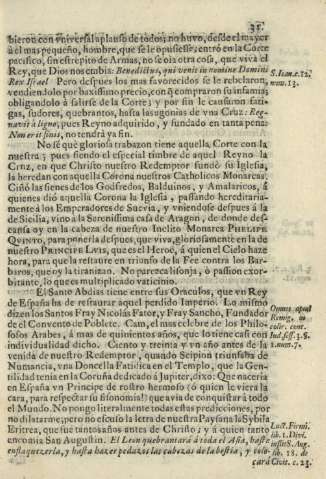 31.
bieron con vniversal aplauso de todos; no huvo, desde el mayor
à el mas pequeño, hombre, que se le opusiesse; entrò en la Corte
pacifico, sin estrepito de Armas, no se oìa otra cosa, que viva el
Rey, que Dios nos embia: Benedictus, qui venit in nomine Domini
Rex Israel Pero despues los mas favorecidos se le rebelaron,
vendiendolo por baxissimo precio, con q compraron su infamia;
obligandolo à salirse de la Corte; y por fin le causaron fati-
gas, sudores, quebrantos, hasta las agonias de vna Cruz: Reg-
navit à ligno, pues Reyno adquirido, y fundado en tanta pena:
Non erit finis, no tendrà ya fin.
No sè què gloriosa trabazon tiene aquella Corte con la
nuestra; pues siendo el especial timbre de aquel Reyno la
Cruz, en que Christo nuestro Redemptor fundò su Iglesia,
la heredan con aquella Corona nuestros Catholicos Monarcas.
Ciñò las sienes de los Godfredos, Balduinos, y Amalaricos, à
quienes diò aquella Corona la Iglesia, passando hereditaria-
mente à los Emperadores de Suevia, y vniendose despues à la
de Sicilia, vino à la Serenissima casa de Aragon, de donde des-
cansa oy en la cabeza de nuestro Inclito Monarca PHELIPE
QVINTO, para ponerla despues, que viva, gloriosamente en la de
nuestro PRINCIPE LVIS, que es el Heroe, à quien el Cielo haze
hora, para que la restaure en triunfo de la Fee contra los Bar-
baros, que oy la tiranizan. No parezca lisonja, ò passion exor-
bitante, lo que es multiplicado vaticinio.
El Santo Abdias tiene entre sus Oraculos, que vn Rey
de España ha de restaurar aquel perdido Imperio. Lo mismo
dizen los Santos Fray Nicolàs Fator, y Fray Sancho, Fundador
de el Convento de Poblete. Cam, el mas celebre de los Philo-
sofos Arabes, à mas de quinientos años, que lo tiene casi con
individualidad dicho. Ciento y treinta y vn años antes de la
venida de nuestro Redemptor, quando Scipion triunfaba de
Numancia, vna Doncella Fatidica en el Templo, que la Gen-
tilidad tenia en la Coruña dedicado à Jupiter, dixo: Que naceria
en España vn Principe de rostro hermoso (ò quien le viera la
cara, para respectar su fisonomia!) que avia de conquistar à todo
el Mundo. No pongo literalmente todas estas predicciones, por
no dilatarme, pero no escuso la letra de nuestra Paysana la Sybila
Eritrea, que fuè tantos años antes de Christo; y à quien tanto
encomia San Augustin. El Leon quebrantarà à toda el Asia, hasta
ensaquezerla, y hasta hazer pedazos las cabezas de la bestia, y
S. Ioan. c. 12.
num. 13.
Omnes apud
in
coler. cent.
Ind.
§. num. 7.
lib. 1. Divi.
instit S. Aug.
lib. 18. de
Civit. c. 23.